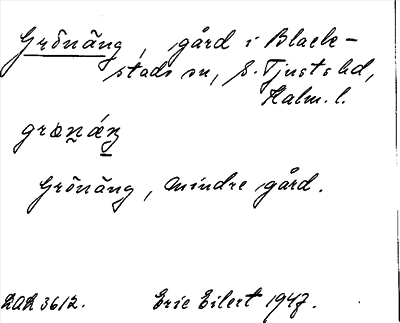 Grönäng, gård i Black-
stads sn, S. Tjusts hd,
Kalm. l.
grœnáŋ
Grönäng, mindre gård.
ULA 3612. Eric Eilert 1947.